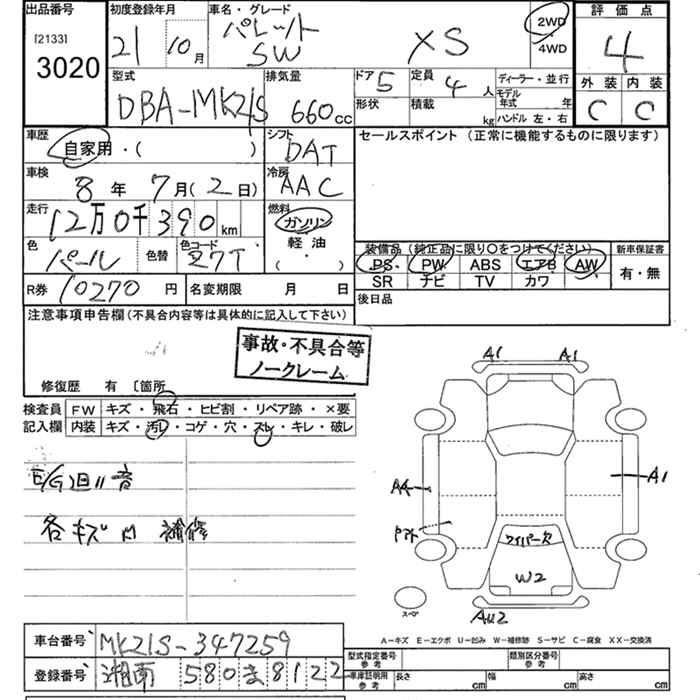 出品番号 初度登録年月 車名・グレード 評価点
[2133] 3020
21 10月 パレット SW XS 2WD 4WD 4
型式 排気量 ドア 5 定員 4人 ディーラー・並行 外装 内装
DBA-MK21S 660cc 形状 積載 kg モデル年式 年 ハンドル 左・右 C C
車歴 シフト セールスポイント (正常に機能するものに限ります)
自家用・( ) DAT
車検 冷房
8年 7月(2日) AAC
走行 燃料
12万0千390km ガソリン
色 色替 色コード 軽油 装備品 (純正品に限り○をつけてください) 新車保証書
パール Z7T ( ・ ) PS PW ABS エアB AW 有・無
SR ナビ TV カワ
R券 10270円 名変期限 月 日 後日品
注意事項申告欄(不具合内容等は具体的に記入して下さい)
事故・不具合等
ノークレーム
修復歴 有 〔箇所
検査員 FW キズ・飛石・ヒビ割・リペア跡・×要
記入欄 内装 キズ・汚レ・コゲ・穴・スレ・キレ・破レ
A1 A1
E/G廻り音
AA A1
各キズ凹 補修
ワイパー欠
W2
スペア AU2
A−キズ E−エクボ U−凹み W−補修跡 S−サビ C−腐食 XX−交換済
車台番号 MK21S-347259
型式指定番号 参考 類別区分番号 参考
登録番号 湘南 580 ま 8122
車庫証明用 参考 長さ cm 幅 cm 高さ cm